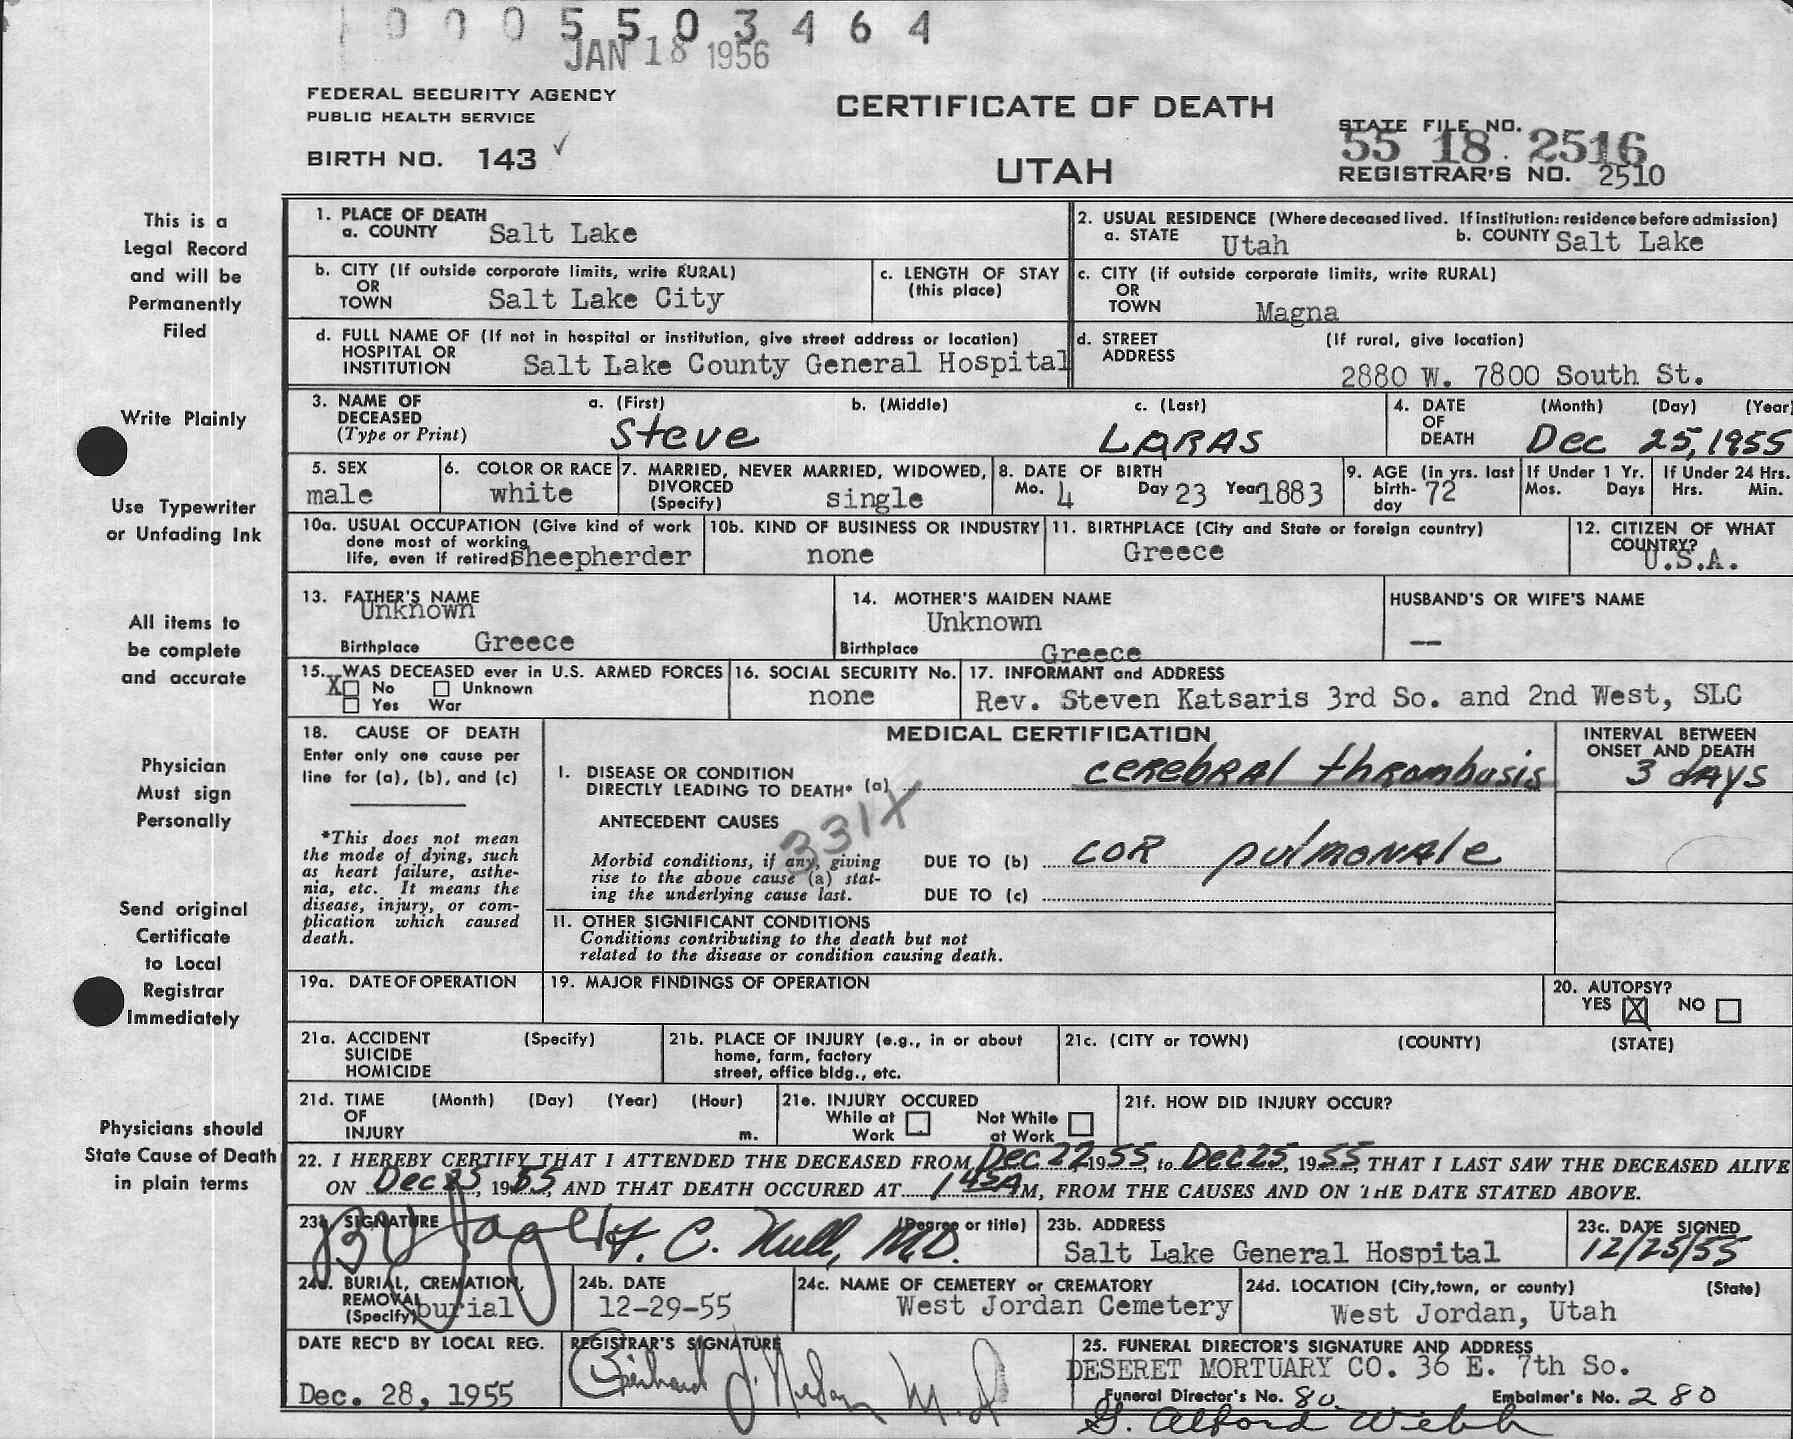 0 0 0 5 5 0 3 4 6 4
JAN 18 1956
FEDERAL SECURITY AGENCY
PUBLIC HEALTH SERVICE
BIRTH NO. 143 ✓
CERTIFICATE OF DEATH
UTAH
STATE FILE NO.
55 18 2516
REGISTRAR'S NO. 2510
This is a
Legal Record
and will be
Permanently
Filed
Write Plainly
Use Typewriter
or Unfading Ink
All items to
be complete
and accurate
Physician
Must sign
Personally
Send original
Certificate
to Local
Registrar
Immediately
Physicians should
State Cause of Death
in plain terms
1. PLACE OF DEATH
a. COUNTY Salt Lake
2. USUAL RESIDENCE (Where deceased lived. If institution: residence before admission)
a. STATE Utah b. COUNTY Salt Lake
b. CITY (If outside corporate limits, write RURAL)
OR
TOWN Salt Lake City
c. LENGTH OF STAY
(this place)
c. CITY (if outside corporate limits, write RURAL)
OR
TOWN Magna
d. FULL NAME OF (If not in hospital or institution, give street address or location)
HOSPITAL OR
INSTITUTION Salt Lake County General Hospital
d. STREET (If rural, give location)
ADDRESS
2880 W. 7800 South St.
3. NAME OF a. (First) b. (Middle) c. (Last)
DECEASED
(Type or Print) Steve LARAS
4. DATE (Month) (Day) (Year)
OF
DEATH Dec 25, 1955
5. SEX
male
6. COLOR OR RACE
white
7. MARRIED, NEVER MARRIED, WIDOWED,
DIVORCED
(Specify) single
8. DATE OF BIRTH
Mo. 4 Day 23 Year 1883
9. AGE (in yrs. last
birth- 72
day
If Under 1 Yr.
Mos. Days
If Under 24 Hrs.
Hrs. Min.
10a. USUAL OCCUPATION (Give kind of work
done most of working
life, even if retired) Sheepherder
10b. KIND OF BUSINESS OR INDUSTRY
none
11. BIRTHPLACE (City and State or foreign country)
Greece
12. CITIZEN OF WHAT
COUNTRY?
U.S.A.
13. FATHER'S NAME
Unknown
Birthplace Greece
14. MOTHER'S MAIDEN NAME
Unknown
Birthplace Greece
HUSBAND'S OR WIFE'S NAME
—
15. WAS DECEASED ever in U.S. ARMED FORCES
X No Unknown
Yes War
16. SOCIAL SECURITY No.
none
17. INFORMANT and ADDRESS
Rev. Steven Katsaris 3rd So. and 2nd West, SLC
18. CAUSE OF DEATH
Enter only one cause per
line for (a), (b), and (c)
*This does not mean
the mode of dying, such
as heart failure, asthe-
nia, etc. It means the
disease, injury, or com-
plication which caused
death.
MEDICAL CERTIFICATION
INTERVAL BETWEEN
ONSET AND DEATH
I. DISEASE OR CONDITION
DIRECTLY LEADING TO DEATH* (a) cerebral thrombosis 3 days
ANTECEDENT CAUSES
331X
Morbid conditions, if any, giving
rise to the above cause (a) stat-
ing the underlying cause last.
DUE TO (b) cor pulmonale
DUE TO (c)
II. OTHER SIGNIFICANT CONDITIONS
Conditions contributing to the death but not
related to the disease or condition causing death.
19a. DATE OF OPERATION
19. MAJOR FINDINGS OF OPERATION
20. AUTOPSY?
YES X NO
21a. ACCIDENT (Specify)
SUICIDE
HOMICIDE
21b. PLACE OF INJURY (e.g., in or about
home, farm, factory
street, office bldg., etc.
21c. (CITY or TOWN) (COUNTY) (STATE)
21d. TIME (Month) (Day) (Year) (Hour)
OF
INJURY m.
21e. INJURY OCCURED
While at Not While
Work at Work
21f. HOW DID INJURY OCCUR?
22. I HEREBY CERTIFY THAT I ATTENDED THE DECEASED FROM Dec 22 1955, to Dec 25, 1955, THAT I LAST SAW THE DECEASED ALIVE
ON Dec 25, 1955, AND THAT DEATH OCCURED AT 1 45 A M, FROM THE CAUSES AND ON THE DATE STATED ABOVE.
23a. SIGNATURE (Degree or title)
C. Hull, M.D.
23b. ADDRESS
Salt Lake General Hospital
23c. DATE SIGNED
12/25/55
24a. BURIAL, CREMATION,
REMOVAL
(Specify) burial
24b. DATE
12-29-55
24c. NAME OF CEMETERY or CREMATORY
West Jordan Cemetery
24d. LOCATION (City, town, or county) (State)
West Jordan, Utah
DATE REC'D BY LOCAL REG.
Dec. 28, 1955
REGISTRAR'S SIGNATURE
M.D
25. FUNERAL DIRECTOR'S SIGNATURE AND ADDRESS
DESERET MORTUARY CO. 36 E. 7th So.
Funeral Director's No. 80 Embalmer's No. 280
G. Alford Webb